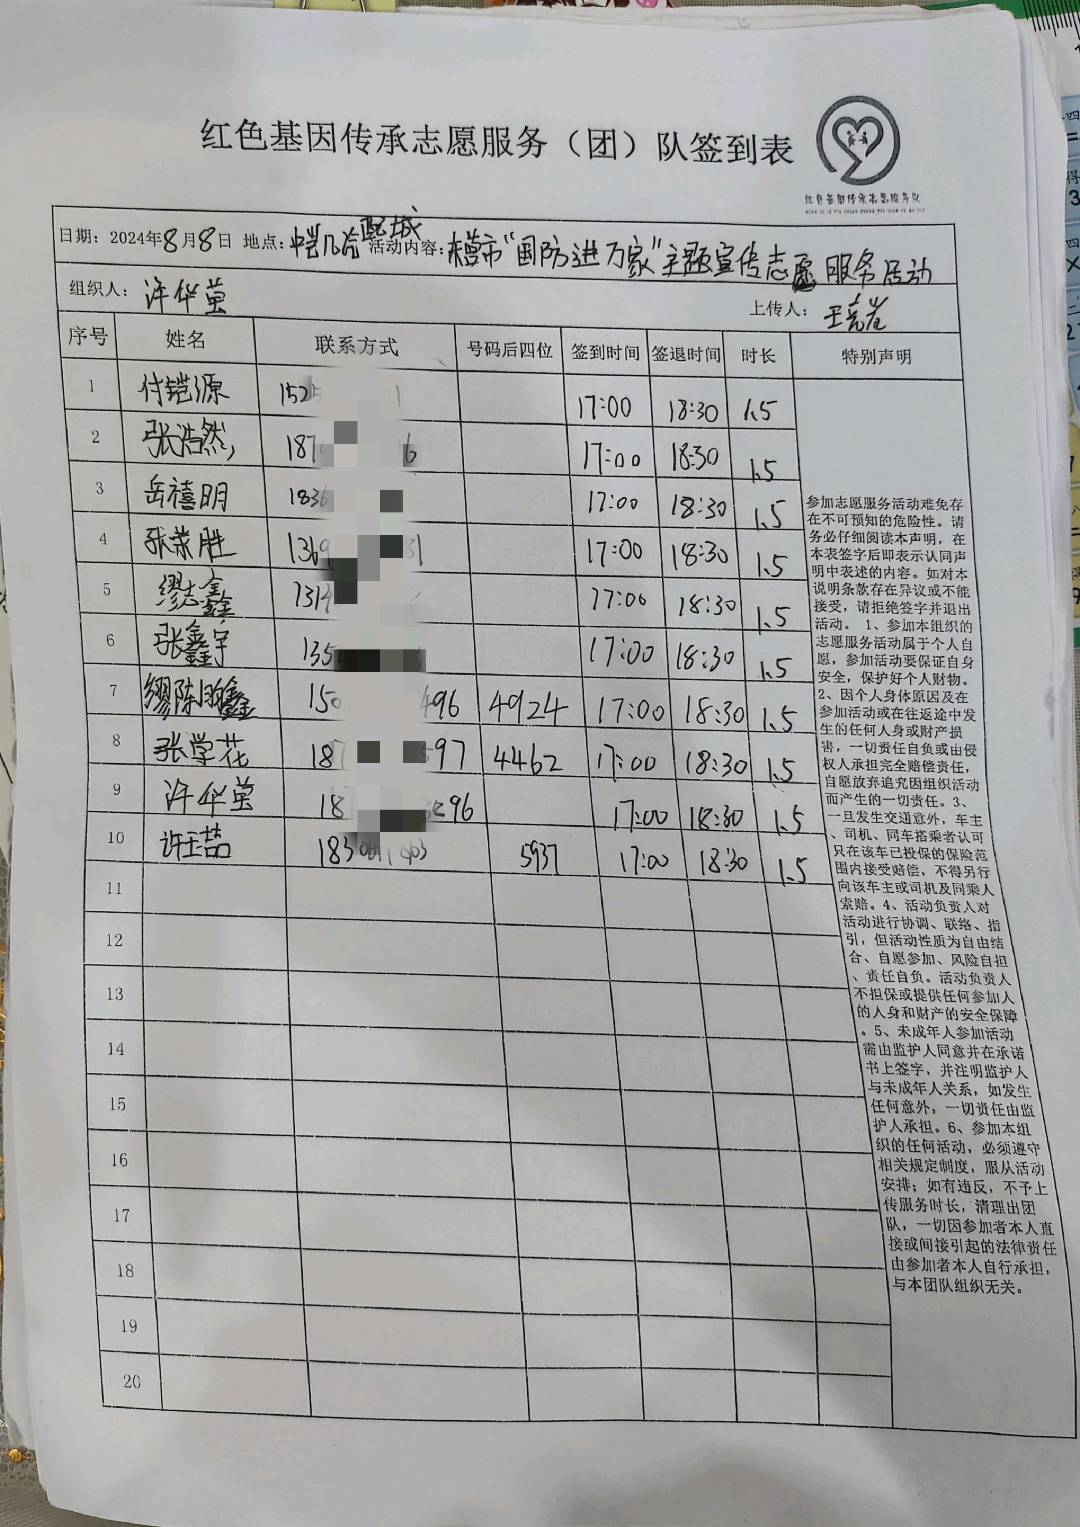 红色基因传承志愿服务（团）队签到表
红色基因传承志愿服务队
日期：2024年8月8日 地点： 活动内容：市“国防进万家”主题宣传志愿服务活动
组织人：许华萤 上传人：
序号 姓名 联系方式 号码后四位 签到时间 签退时间 时长 特别声明
1 付铠源 152 1 17:00 18:30 1.5
2 张浩然 187 6 17:00 18:30 1.5
3 岳禧明 1836 17:00 18:30 1.5
4 张荣胜 1369 81 17:00 18:30 1.5
5 缪志鑫 131 17:00 18:30 1.5
6 张鑫宇 135 17:00 18:30 1.5
7 缪陈 鑫 150 496 4924 17:00 18:30 1.5
8 张学花 18 597 4462 17:00 18:30 1.5
9 许华萤 18 96 17:00 18:30 1.5
10 许玉喆 183 5937 17:00 18:30 1.5
11
12
13
14
15
16
17
18
19
20
参加志愿服务活动难免存
在不可预知的危险性。请
务必仔细阅读本声明，在
本表签字后即表示认同声
明中表述的内容。如对本
说明条款存在异议或不能
接受，请拒绝签字并退出
活动。 1、参加本组织的
志愿服务活动属于个人自
愿，参加活动要保证自身
安全，保护好个人财物。
2、因个人身体原因及在
参加活动或在往返途中发
生的任何人身或财产损
害，一切责任自负或由侵
权人承担完全赔偿责任，
自愿放弃追究因组织活动
而产生的一切责任。3、
一旦发生交通意外，车主
、司机、同车搭乘者认可
只在该车已投保的保险范
围内接受赔偿，不得另行
向该车主或司机及同乘人
索赔。4、活动负责人对
活动进行协调、联络、指
引，但活动性质为自由结
合、自愿参加、风险自担
、责任自负。活动负责人
不担保或提供任何参加人
的人身和财产的安全保障
。5、未成年人参加活动
需由监护人同意并在承诺
书上签字，并注明监护人
与未成年人关系，如发生
任何意外，一切责任由监
护人承担。6、参加本组
织的任何活动，必须遵守
相关规定制度，服从活动
安排；如有违反，不予上
传服务时长，清理出团
队，一切因参加者本人直
接或间接引起的法律责任
由参加者本人自行承担，
与本团队组织无关。